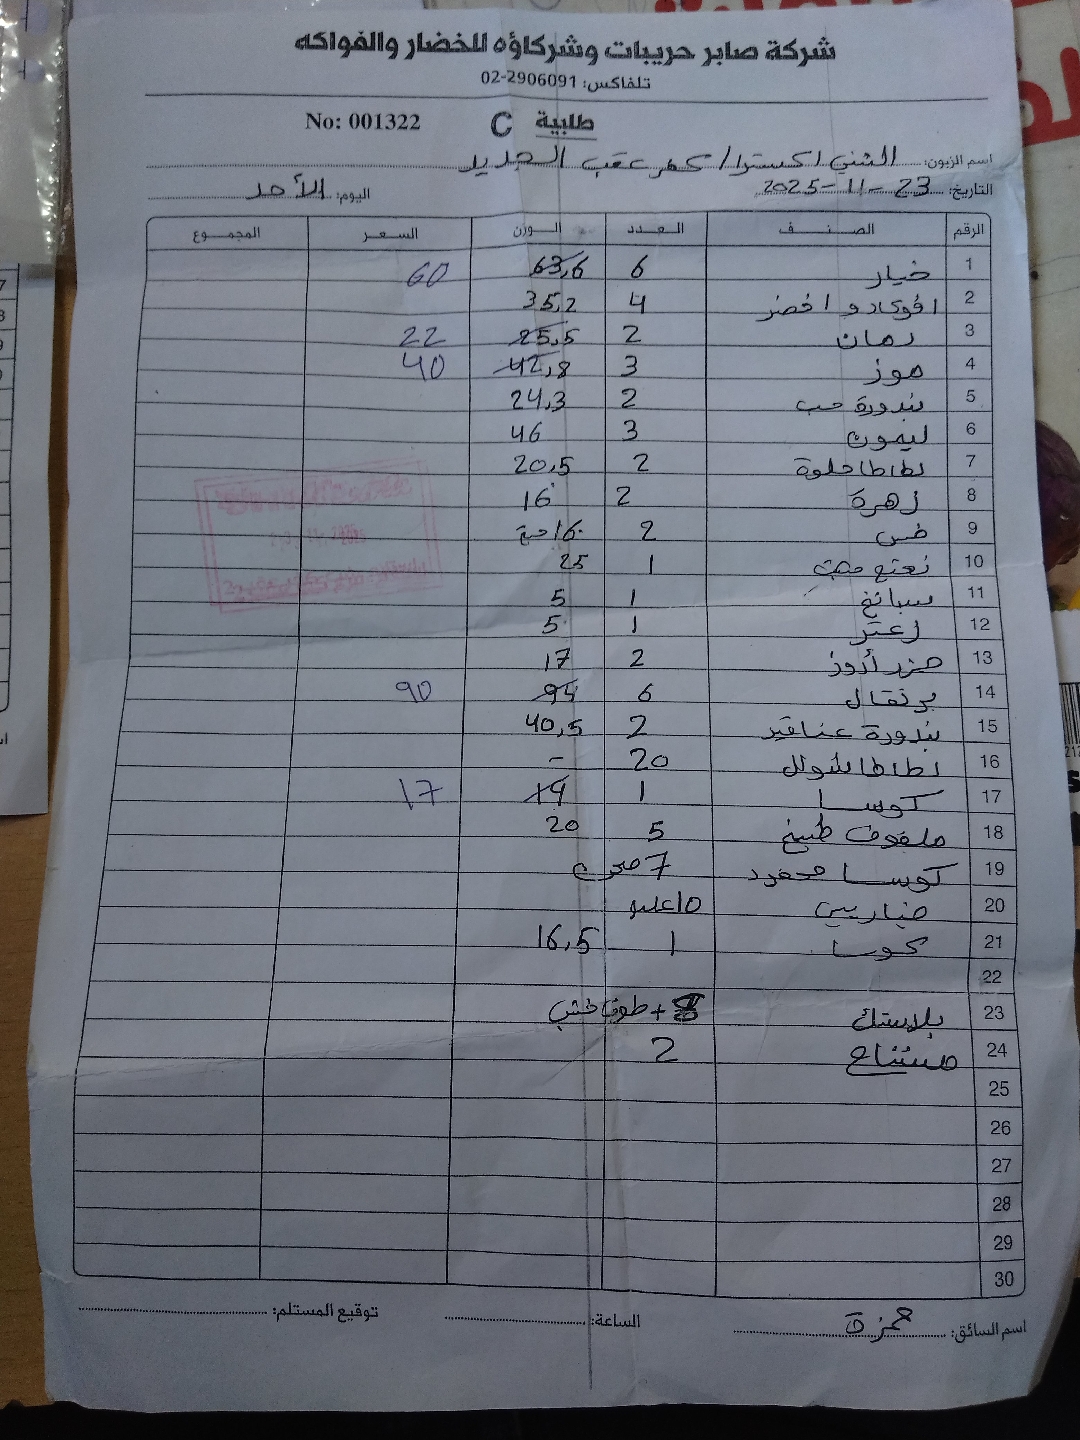 شركة صابر حريبات وشركاؤه للخضار والفواكه
تلفاكس: 02-2906091
طلبية C No: 001322
اسم الزبون: الشني اكسترا / كفر عقب الجديد
التاريخ: 23-11-2025 اليوم: الأحد
الرقم الصنف العدد الوزن السعر المجموع
1 خيار 6 63,6 60
2 افوكادو اخضر 4 35,2
3 رمان 2 25,5 22
4 موز 3 42,8 40
5 بندورة حب 2 24,3
6 ليمون 3 46
7 بطاطا حلوة 2 20,5
8 زهرة 2 16
9 خس 2 16 حبة
10 نعنع 1 25
11 سبانخ 1 5
12 زعتر 1 5
13 جزر 2 17
14 برتقال 6 94 90
15 بندورة عناقيد 2 40,5
16 بطاطا شوال 20 -
17 كوسا 1 19 17
18 ملفوف طبيخ 5 20
19 كوسا محفور 7 صحن
20 10 علب
21 كوسا 1 16,5
22
23 بلاستك + طوف خشب
24 مشتاح 2
25
26
27
28
29
30
اسم السائق: حمزة الساعة: توقيع المستلم: